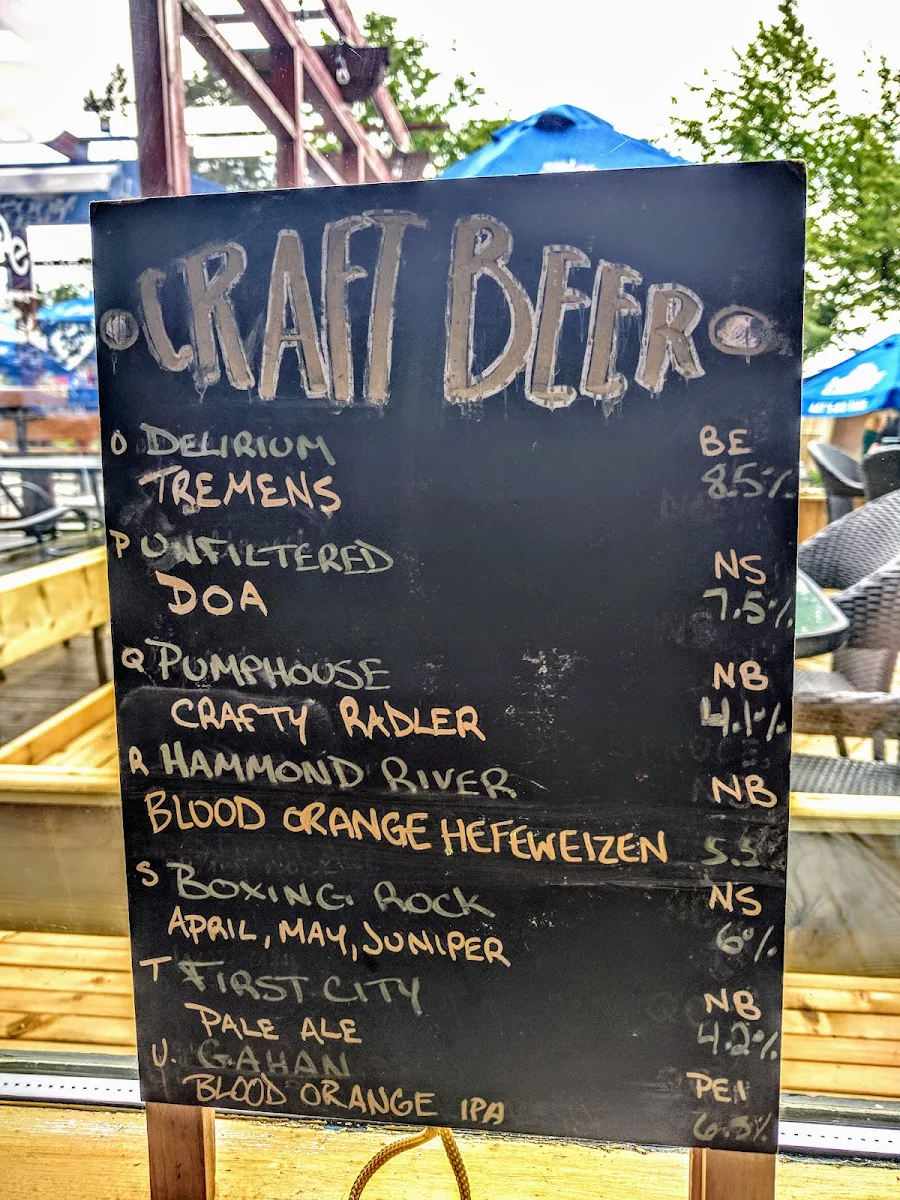 CRAFT BEER
O DELIRIUM BE
TREMENS 8.5%
P UNFILTERED NS
DOA 7.5%
Q PUMPHOUSE NB
CRAFTY RADLER 4.1%
R HAMMOND RIVER NB
BLOOD ORANGE HEFEWEIZEN 5.5
S BOXING ROCK NS
APRIL, MAY, JUNIPER 6%
T FIRST CITY NB
PALE ALE 4.2%
U. GAHAN PEI
BLOOD ORANGE IPA